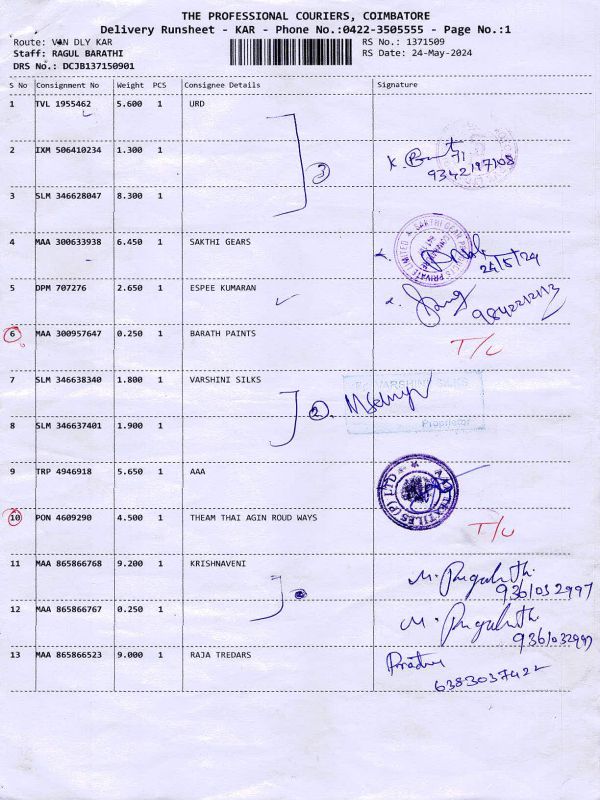 THE PROFESSIONAL COURIERS, COIMBATORE
Delivery Runsheet - KAR - Phone No.:0422-3505555 - Page No.:1
Route: VAN DLY KAR RS No.: 1371509
Staff: RAGUL BARATHI RS Date: 24-May-2024
DRS No.: DCJB137150901
S No Consignment No Weight PCS Consignee Details Signature
1 TVL 1955462 5.600 1 URD
2 IXM 506410234 1.300 1
3
9342197108
3 SLM 346628047 8.300 1
4 MAA 300633938 6.450 1 SAKTHI GEARS
24/5/24
5 DPM 707276 2.650 1 ESPEE KUMARAN
9842212113
6 MAA 300957647 0.250 1 BARATH PAINTS T/U
7 SLM 346638340 1.800 1 VARSHINI SILKS
VARSHINI SILKS
2
Proprietor
8 SLM 346637401 1.900 1
9 TRP 4946918 5.650 1 AAA
10 PON 4609290 4.500 1 THEAM THAI AGIN ROUD WAYS T/U
11 MAA 865866768 9.200 1 KRISHNAVENI
9361032997
12 MAA 865866767 0.250 1
9361032997
13 MAA 865866523 9.000 1 RAJA TREDARS
6383037422